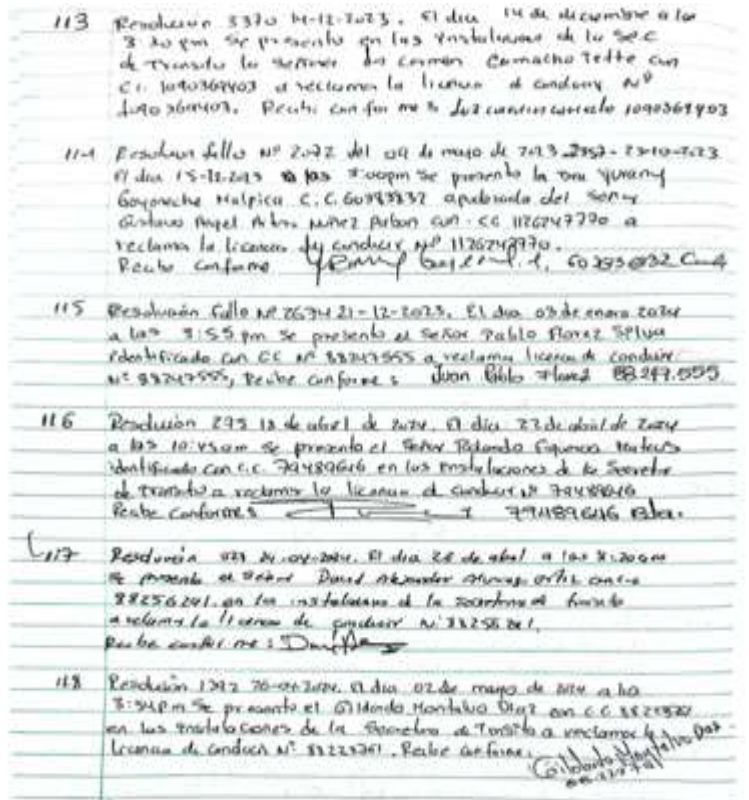 113 Resolución 3370 14-12-2023. El dia 14 de diciembre a las
3:30 pm se presento en las instalaciones de la Sec
de Transito la Señora Carmen Camacho Tette con
C.C. 1090369403 a reclamar la licencia de conducir Nº
1090369403. Recibi conforme: 1090369403
114 Resolucion fallo Nº 2072 del 09 de mayo de 2023 23-10-2023
El dia 15-12-2023 a las 3:00pm se presento la Dra Yurany
Goyeneche Malpica C.C. 60393832 apoderada del Señor
Gustavo Angel con CC 1126247770 a
reclamar la licencia de conducir Nº 1126247770.
Recibe Conforme
115 Resolución fallo Nº 2634 21-12-2023. El dia 03 de enero 2024
a las 3:55 pm se presento el Señor Pablo Florez Silva
identificado con CC Nº 88247555 a reclamar licencia de conducir
Nº 88247555, Recibe conforme: Juan Pablo Florez 88.247.555
116 Resolución 295 18 de abril de 2024. El día 22 de abril de 2024
a las 10:45am se presento el Señor Rolando Figueroa Mateus
identificado con c.c. 79489646 en las instalaciones de la Secretaria
de transito a reclamar la licencia de conducir Nº 79489646
Recibe Conforme: 79489646
117 Resolución 24-04-2024. El dia 26 de abril a las 8:20am
se presento el Señor David Alexander Ortiz con cc
88256241. en las instalaciones de la secretaria de transito
a reclamar la licencia de conducir Nº 88256241.
Recibe conforme:
118 Resolución 1392 El dia 02 de mayo de 2024 a las
3:54pm se presento el Gildardo Montalvo Diaz con C.C.
en las instalaciones de la Secretaria de Transito a reclamar la
licencia de conducir Nº Recibe conforme.
Gildardo Montalvo Diaz